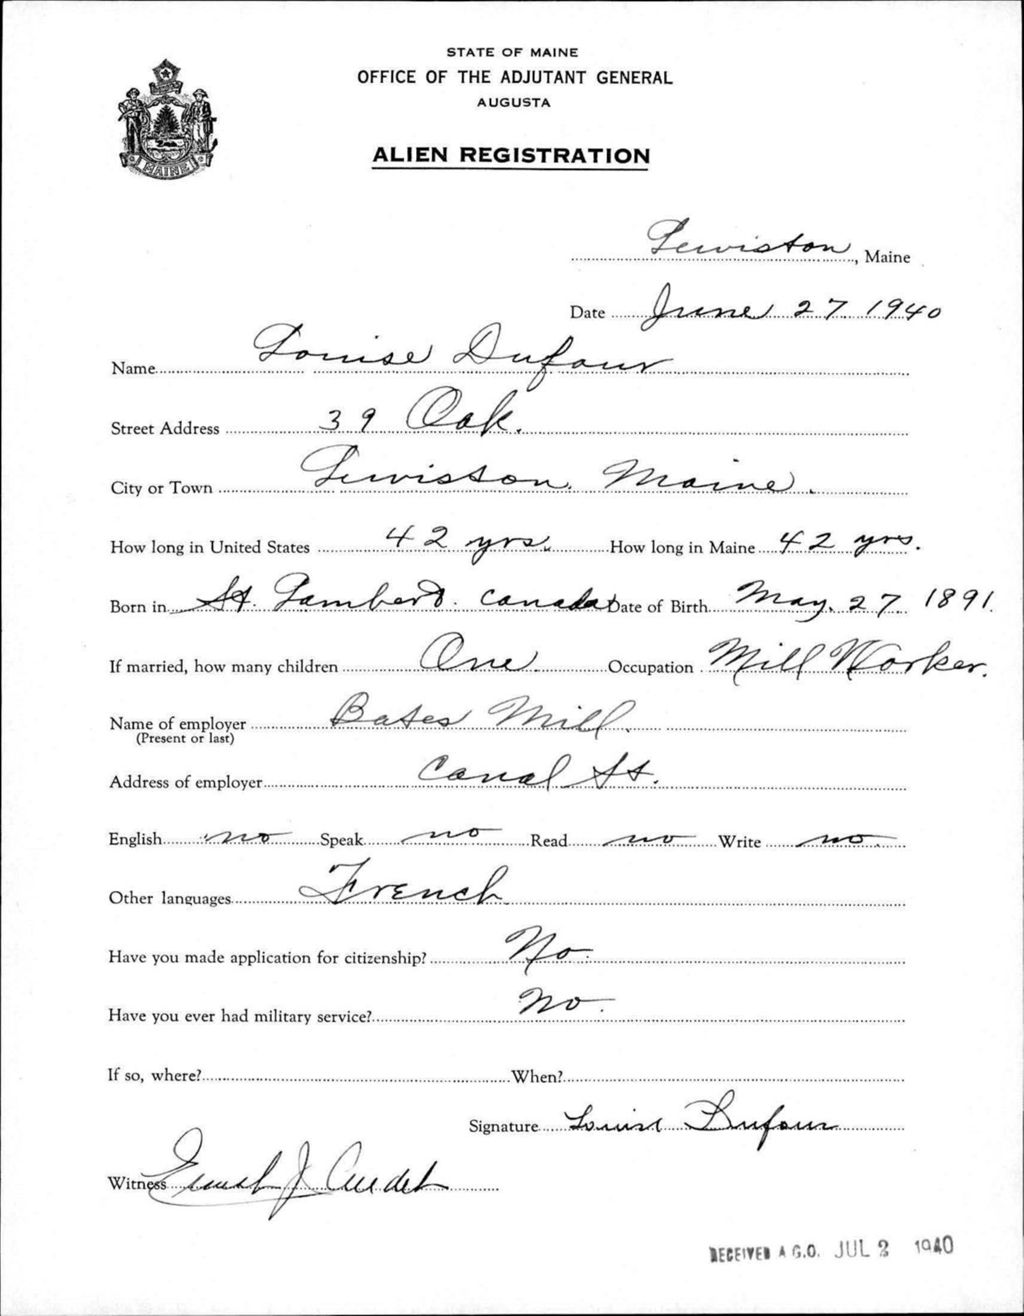 STATE OF MAINE
OFFICE OF THE ADJUTANT GENERAL
AUGUSTA
ALIEN REGISTRATION
MAINE
Lewiston, Maine
Date June 27 1940
Name Louise Dufour
Street Address 39 Oak.
City or Town Lewiston, Maine.
How long in United States 42 yrs. How long in Maine 42 yrs.
Born in St. Lambert. Canada Date of Birth May. 27. 1891.
If married, how many children One. Occupation Mill Worker.
Name of employer Bates Mill.
(Present or last)
Address of employer Canal St.
English no Speak no Read no Write no.
Other languages French
Have you made application for citizenship? No.
Have you ever had military service? No.
If so, where? When?
Signature Louise Dufour
Witness Ernest J Audet
RECEIVED A.G.O. JUL 2 1940